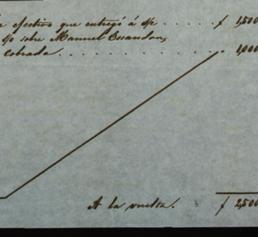 efectivo que entregó á d/o . . . . . $ 1,500
d/o sobre Manuel Escandon,
cobrada . . . . . . . . . . . . " 1,000
A la vuelta. $ 2,500